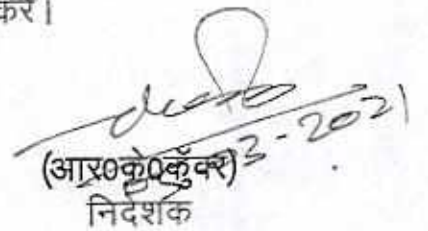 करें।
3-2021
(आर०के०कुँवर)
निदेशक